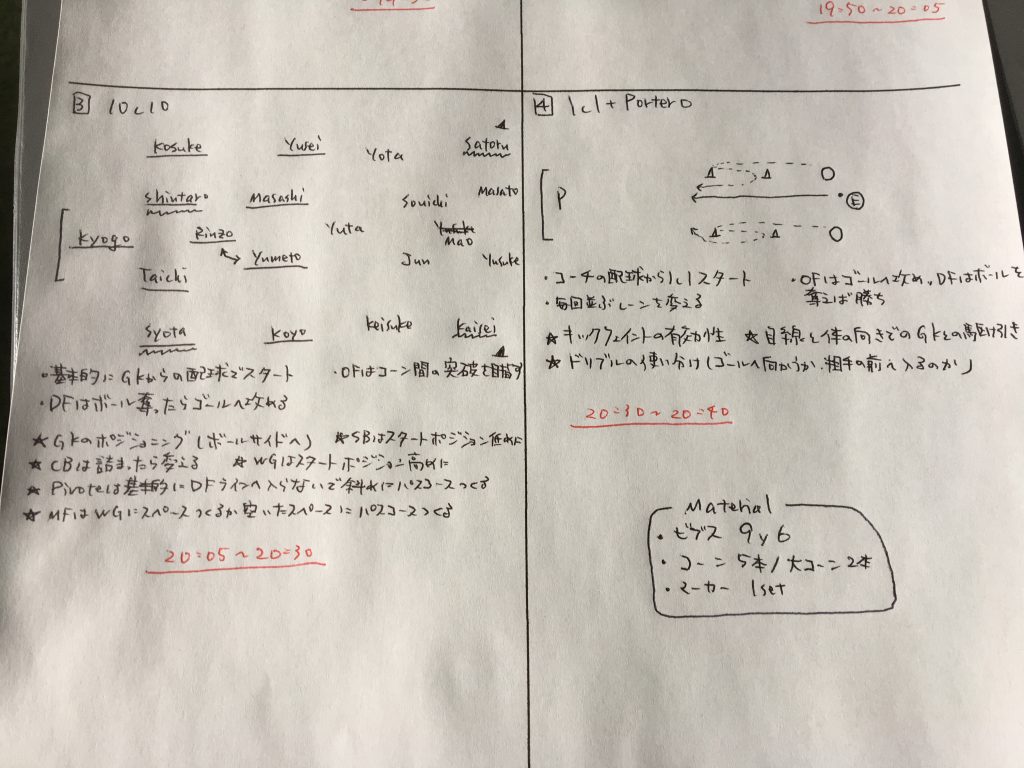 19:50～20:05
③ 10c10
Kosuke Yusei Yota Satoru
Shintaro Masashi Souichi Masato
Kyogo Rinzo Yuta Mao
Yumeto Jun Yusuke
Taichi
Syota Koyo Keisuke Kaisei
・基本的にGKからの配球でスタート ・OFはコーン間の突破を目指す
・DFはボール奪ったらゴールへ攻める
★ GKのポジショニング(ボールサイドへ) ★SBはスタートポジション低めに
★ CBは詰まったら変える ★WGはスタートポジション高めに
★ Pivoteは基本的にDFラインへ入らないで斜めにパスコースつくる
★ MFはWGにスペースつくるか空いたスペースにパスコースつくる
20:05～20:30
④ 1c1+Portero
P E
・コーチの配球から1c1スタート ・OFはゴールへ攻め、DFはボールを
奪えば勝ち
・毎回並ぶレーンを変える
★キックフェイントの有効性 ★目線と体の向きでのGKとの駆け引き
★ドリブルの使い分け(ゴールへ向かうか、相手の前へ入るのか)
20:30～20:40
Material
・ビブス 9y6
・コーン 5本/大コーン2本
・マーカー 1set